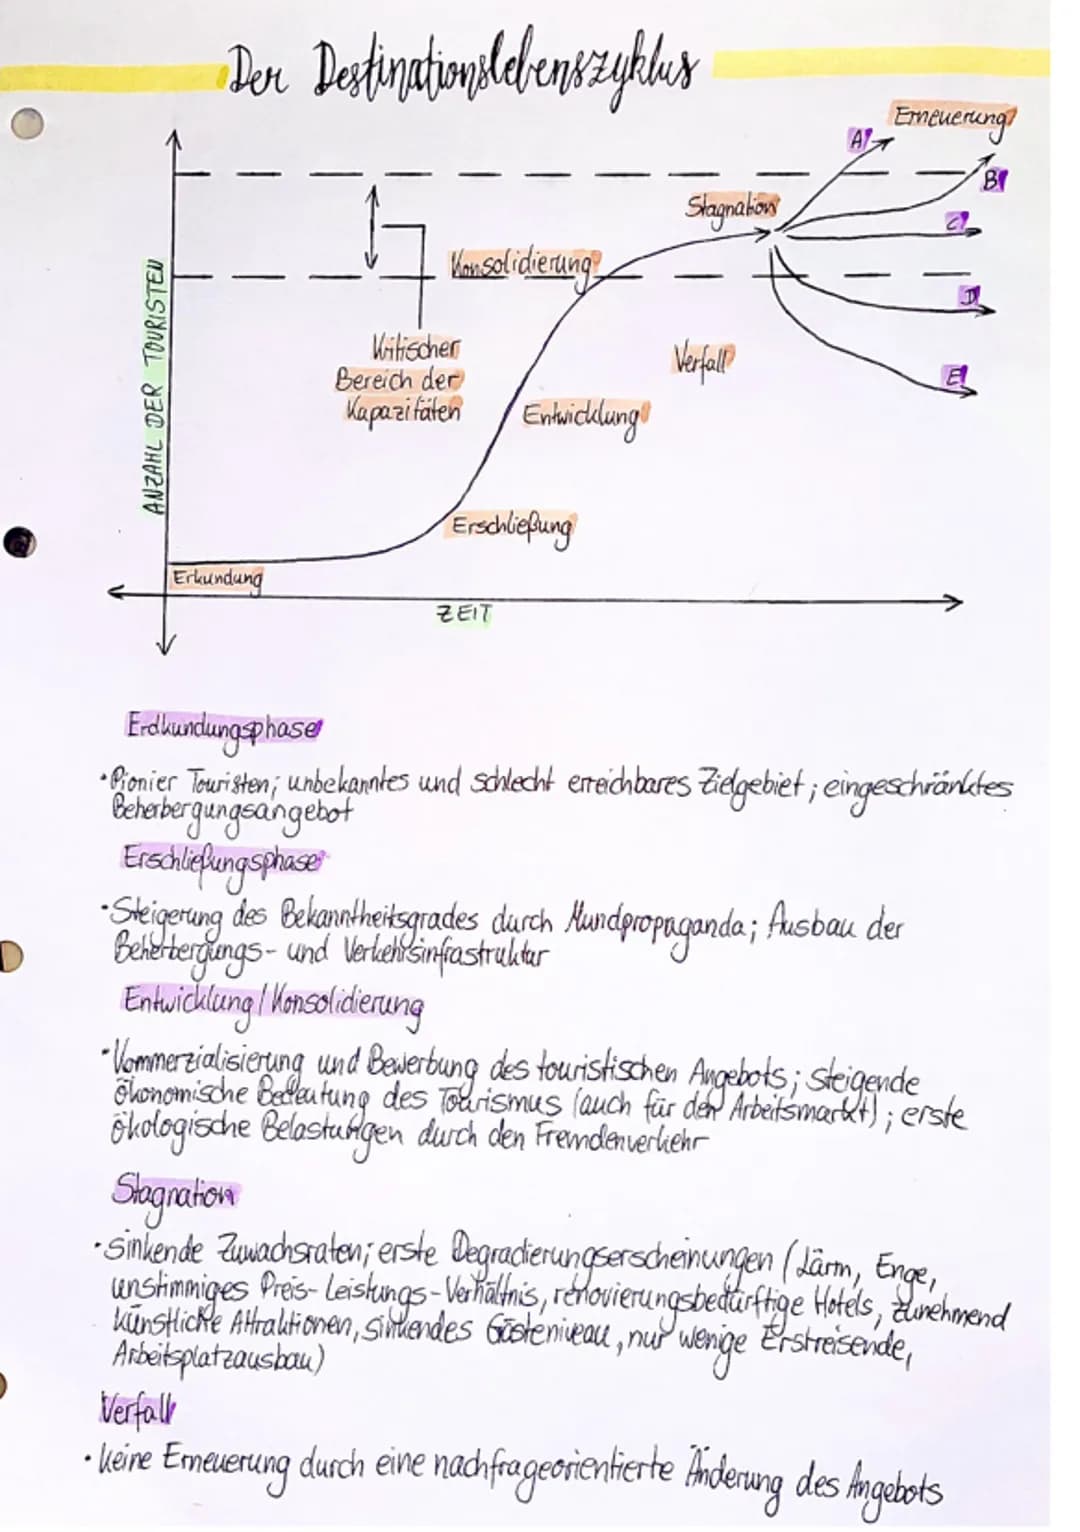 Der Destinationslebenszyklus
Erneuerung
A
B
Stagnation
C
Konsolidierung
D
Kritischer
Bereich der
Kapazitäten
Verfall
E
Entwicklung
ANZAHL DER TOURISTEN
Erschließung
Erkundung
ZEIT
Erdkundungsphase
• Pionier Touristen; unbekanntes und schlecht erreichbares Zielgebiet; eingeschränktes
Beherbergungsangebot
Erschließungsphase
• Steigerung des Bekanntheitsgrades durch Mundpropaganda; Ausbau der
Beherbergungs- und Verkehrsinfrastruktur
Entwicklung / Konsolidierung
• Kommerzialisierung und Bewerbung des touristischen Angebots; steigende
ökonomische Bedeutung des Tourismus (auch für den Arbeitsmarkt); erste
ökologische Belastungen durch den Fremdenverkehr
Stagnation
• sinkende Zuwachsraten; erste Degradierungserscheinungen (Lärm, Enge,
unstimmiges Preis-Leistungs-Verhältnis, renovierungsbedürftige Hotels, zunehmend
künstliche Attraktionen, sinkendes Gästeniveau, nur wenige Erstreisende,
Arbeitsplatzausbau)
Verfall
• keine Erneuerung durch eine nachfrageorientierte Änderung des Angebots